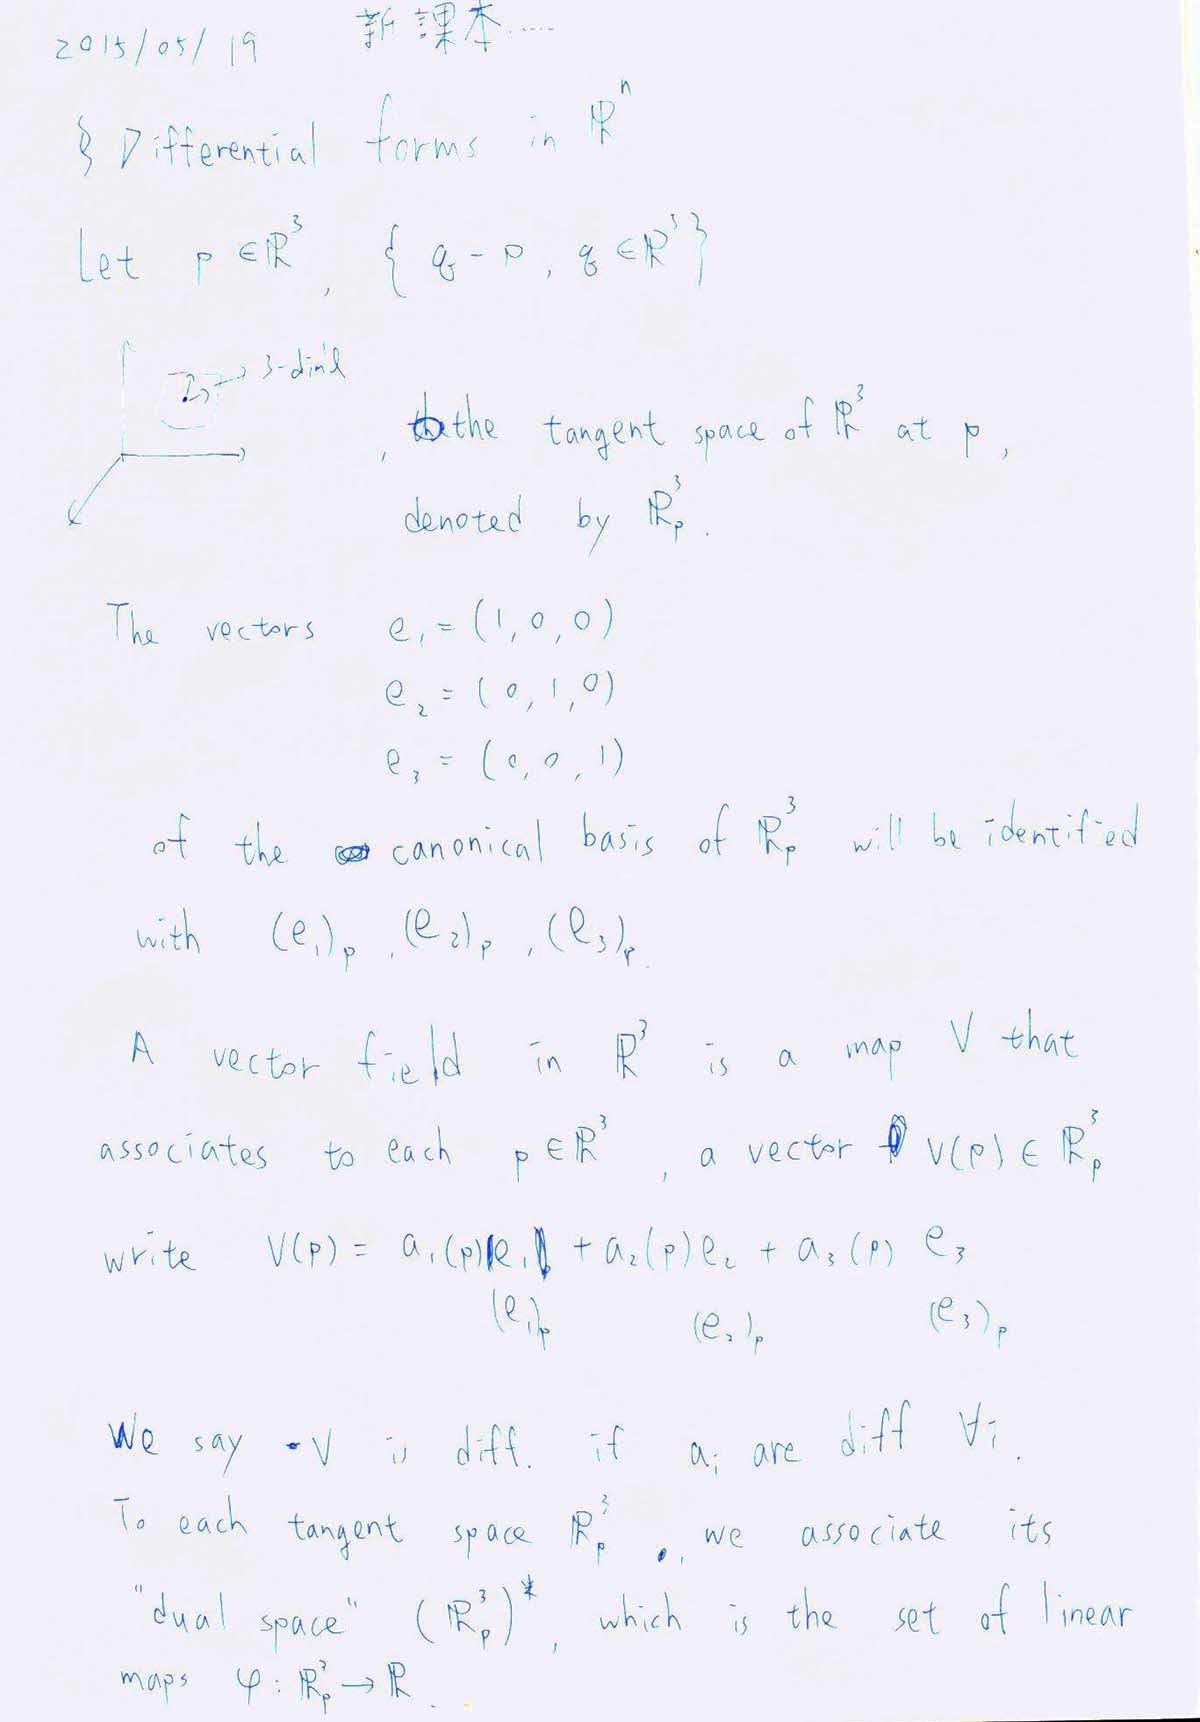 2015/05/19 新課本......
§ Differential forms in ℝⁿ
Let p ∈ ℝ³, { q - p, q ∈ ℝ³ }
3-dim'l
, the tangent space of ℝ³ at p,
denoted by ℝ³ₚ.
The vectors e₁ = (1,0,0)
e₂ = (0,1,0)
e₃ = (0,0,1)
of the canonical basis of ℝ³ₚ will be identified
with (e₁)ₚ, (e₂)ₚ, (e₃)ₚ.
A vector field in ℝ³ is a map V that
associates to each p ∈ ℝ³, a vector V(p) ∈ ℝ³ₚ
write V(p) = a₁(p) e₁ + a₂(p) e₂ + a₃(p) e₃
(e₁)ₚ (e₂)ₚ (e₃)ₚ
We say V is diff. if aᵢ are diff ∀i.
To each tangent space ℝ³ₚ, we associate its
"dual space" (ℝ³ₚ)*, which is the set of linear
maps φ: ℝ³ₚ → ℝ.